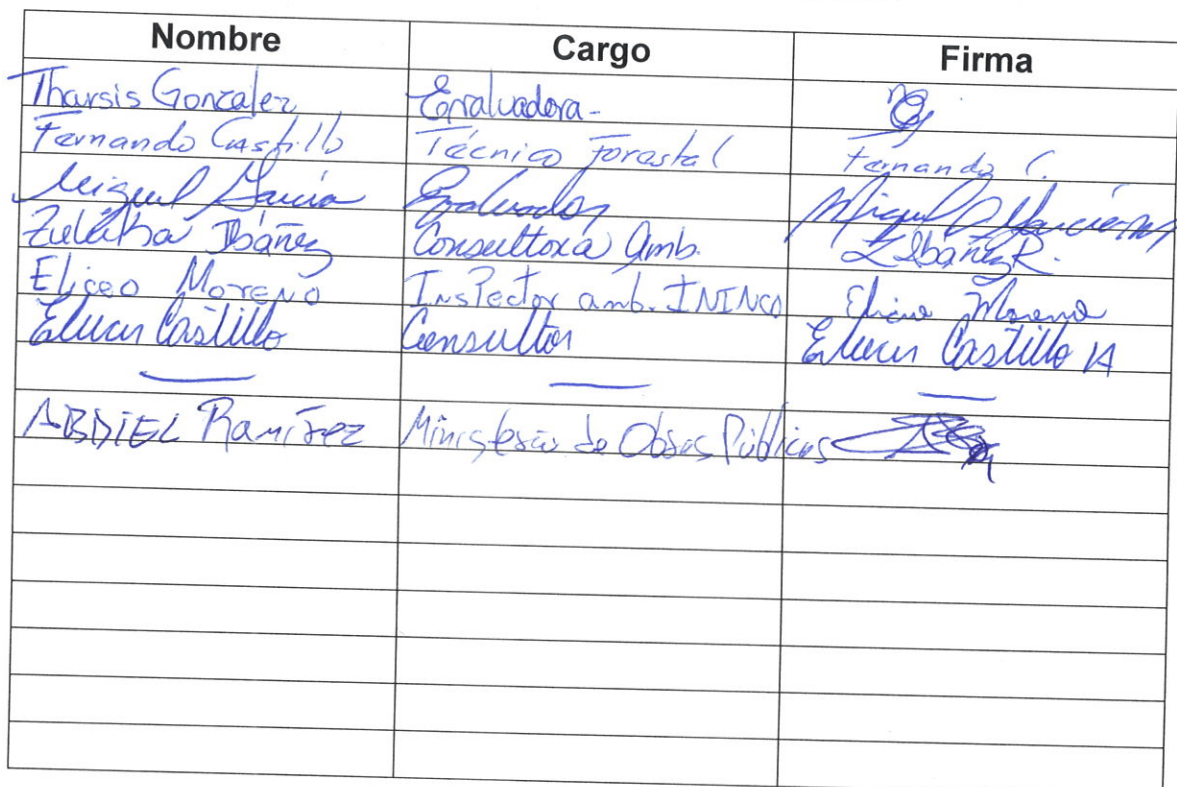 Nombre Cargo Firma
Tharsis Gonzalez Evaluadora -
Fernando Castillo Técnico Forestal Fernando C.
Miguel García Evaluador Miguel
Ibáñez Consultora Amb. Z Ibáñez R.
Eliceo Moreno Inspector amb. Eliceo Moreno
Castillo Consultor Castillo
ABDIEL Ramírez Ministerio de Obras Públicas